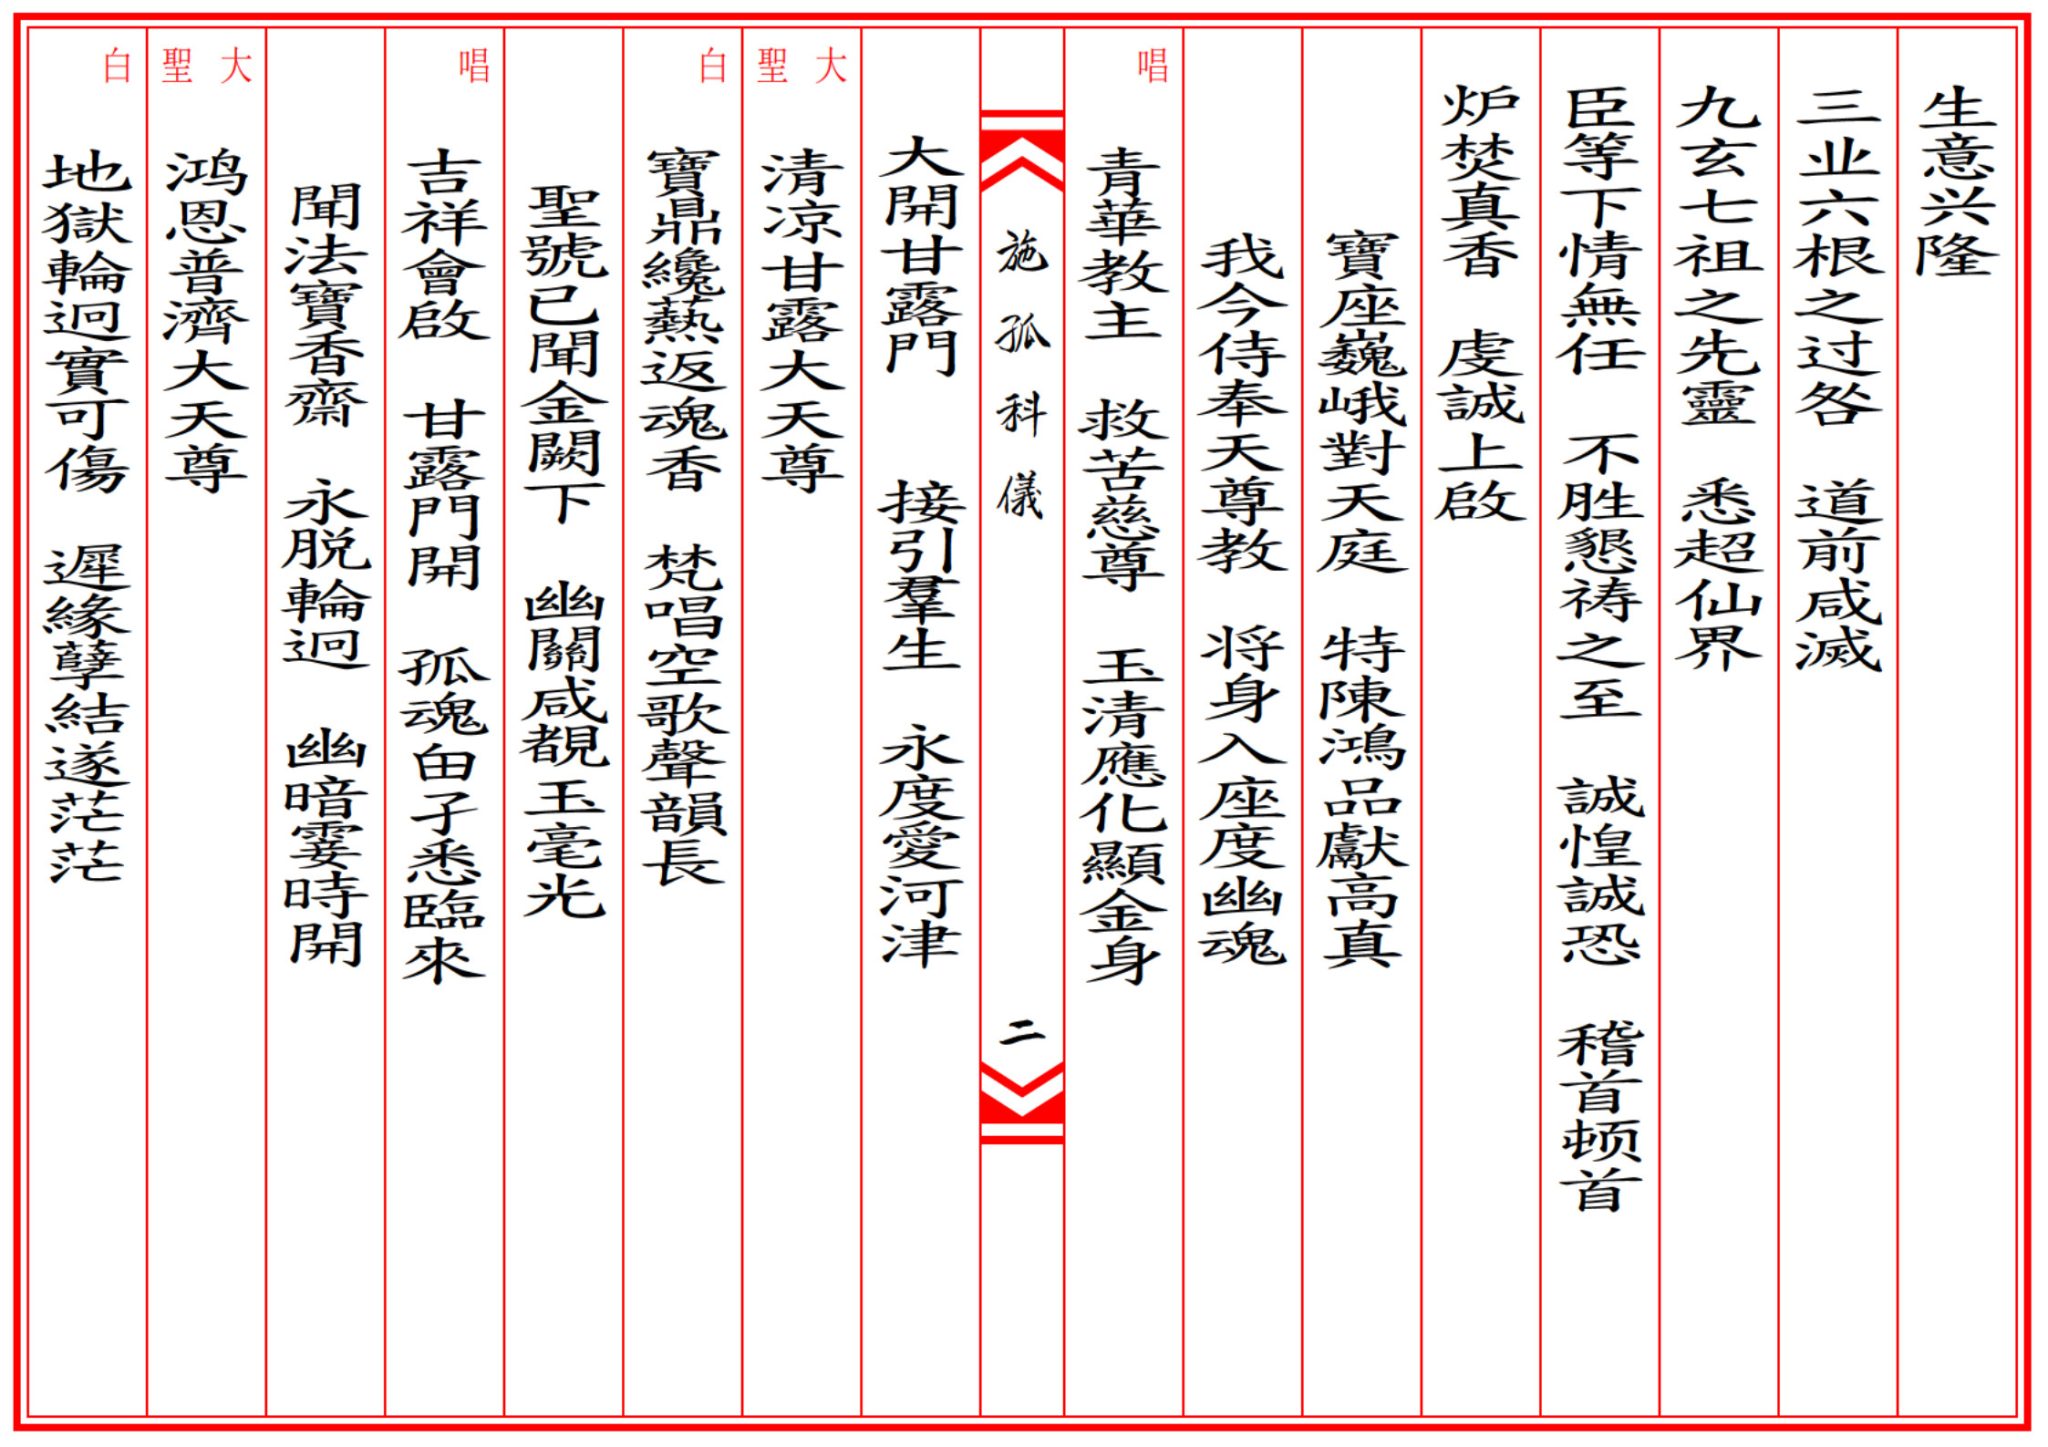 生意兴隆
三业六根之过咎　道前咸滅
九玄七祖之先靈　悉超仙界
臣等下情無任　不胜懇祷之至　誠惶誠恐　稽首顿首
炉焚真香　虔誠上啟
寶座巍峨對天庭　特陳鴻品獻高真
我今侍奉天尊教　将身入座度幽魂
唱　青華教主　救苦慈尊　玉清應化顯金身
施孤科儀　二
大開甘露門　接引羣生　永度愛河津
大聖　清凉甘露大天尊
白　寶鼎纔熱返魂香　梵唱空歌聲韻長
聖號已聞金闕下　幽關咸覩玉毫光
唱　吉祥會啟　甘露門開　孤魂由子悉臨來
聞法寶香齋　永脱輪迴　幽暗霎時開
大聖　鸿恩普濟大天尊
白　地獄輪迴實可傷　遲緣孽結遂茫茫